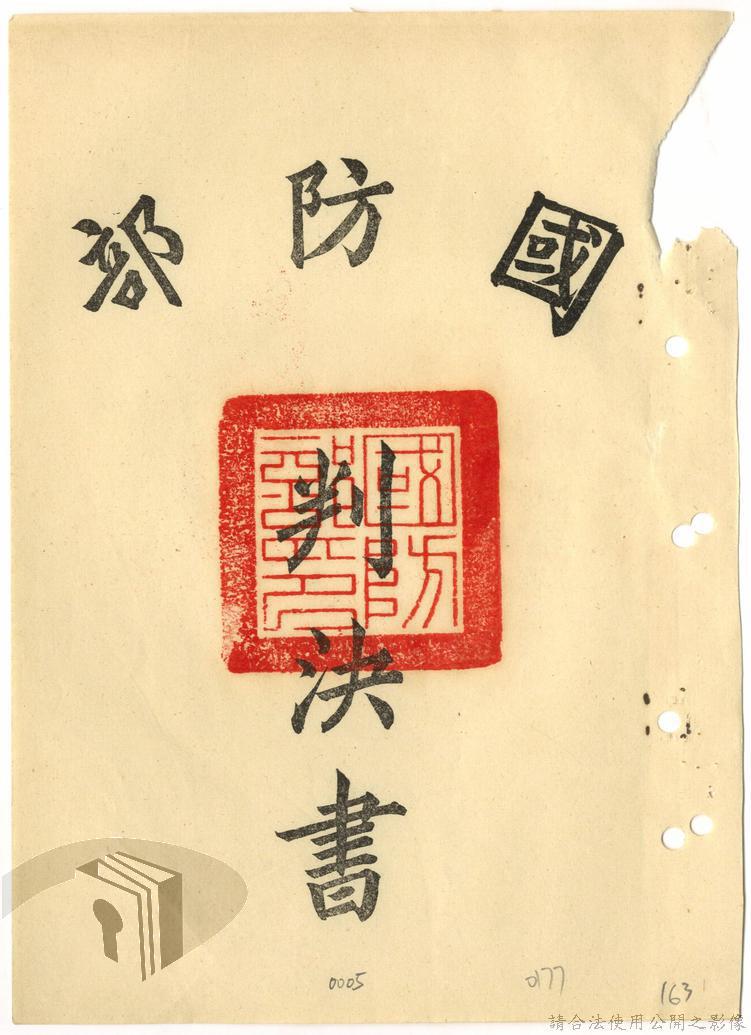 國防部
國防部印
判決書
0005
0177
163
請合法使用公開之影像